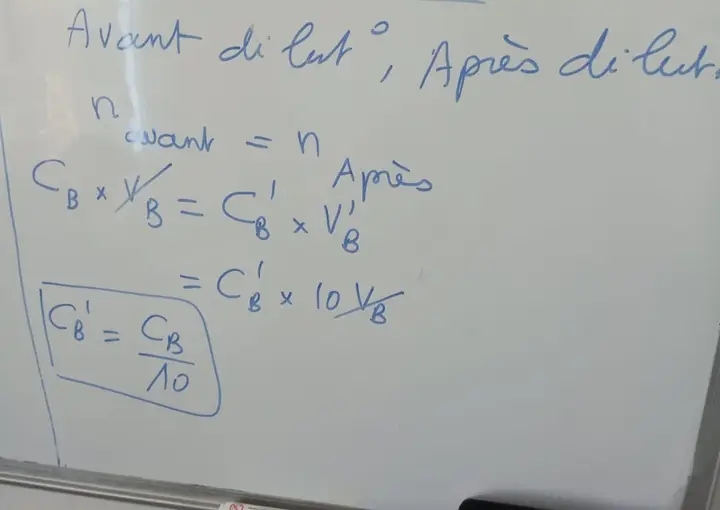 Avant dilut°, Après dilut.
n avant = n Après
C_B × V_B = C_B' × V_B'
= C_B' × 10 V_B
C_B' = C_B / 10